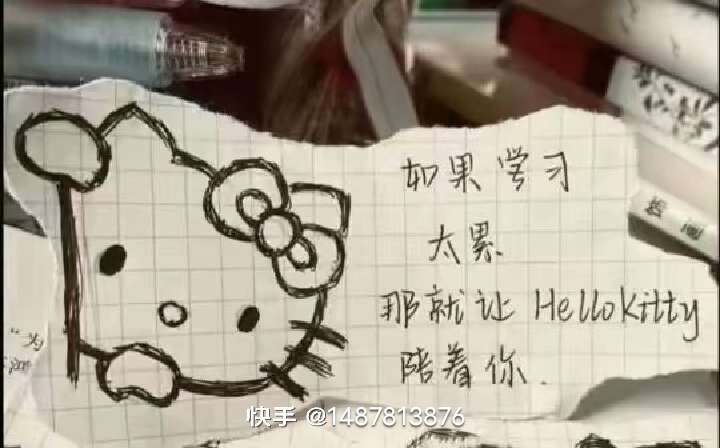 如果学习
太累
那就让 HelloKitty
陪着你.
"为
快手 @1487813876